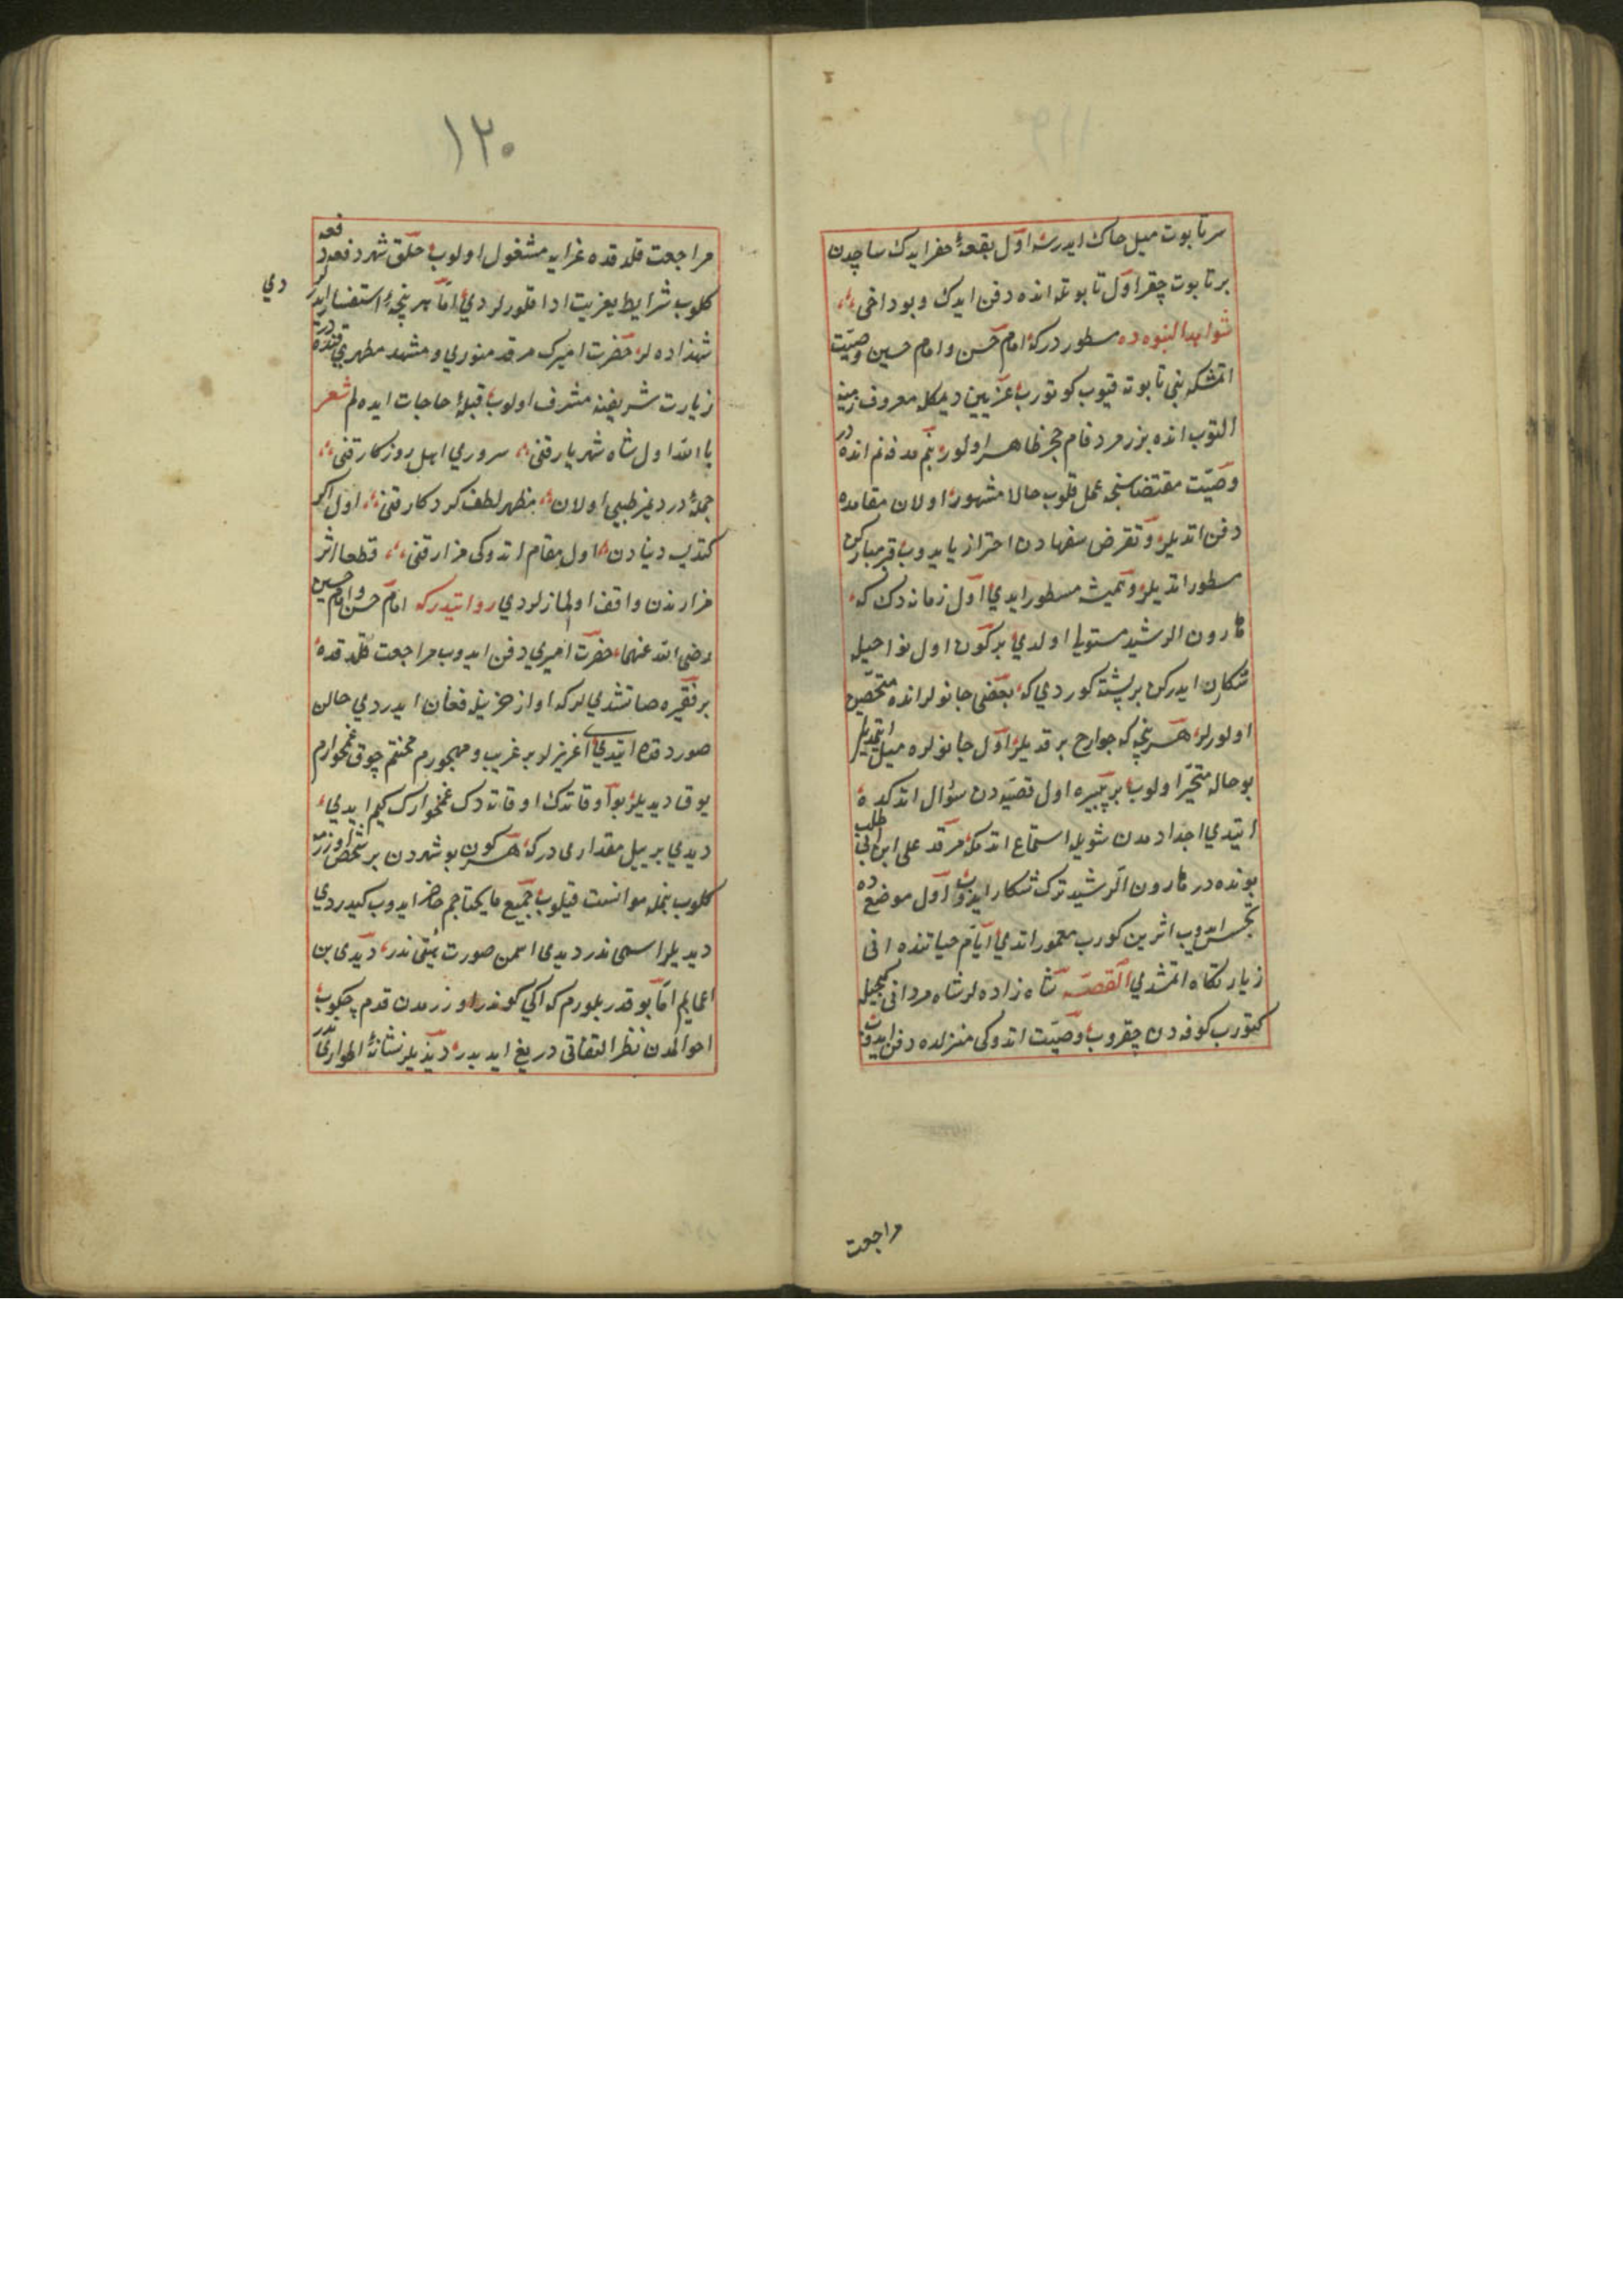 سر تابوت میل خاك ایدرسه اول بقعۀ حفر ایدك ساجدن
بر تابوت چقر اول تابوتله انده دفن ایدك و بو داخی
شواهد النبوه ده مسطور در که امام حسن و امام حسین وصیت
اتمشکه بنی تابوته قیوب کوتورب غزیین دیمکله معروف زمینه
التوب انده بزر مرد فام حجر ظاهر اولور بنم مدفنم انده در
وصیت مقتضاسنجه عمل قلوب حالا مشهور اولان مقامده
دفن اتدیلر و تعرض سفهادن احتراز یا یدوب قبر مبارکن
مسطور اتدیلر و همیشه مسطور ایدی اول زمانه دك که
هارون الرشید مستولی اولدی بر کون اول نواحیله
شکار ایدرکن بر پشته کوردی که بعضی جانورلر انده متحصن
اولورلر هر نیجه که جوارح بر قدیلر اول جانورلره میل اتمدیلر
بو حاله متحیر اولوب بر پیره اول قصیه دن سؤال اتدکده
ایتدی اجدادمدن شویله استماع اتدم که مرقد علی ابن ابی طالب
بونده در هارون الرشید ترك شکار ایدوب اول موضع ده
تجسس ایدوب اثرین کورب معمور اتدی ایام حیاتنده انی
زیارتکاه اتمشدی القصه شاه زاده لر شاه مردانی کیجیله
کتورب کوفه دن چقروب وصیت اتدوکی منزلده دفن ایدوب
مراجعت
١٢٠
مراجعت قلدقده عزایه مشغول اولوب خلق شهر دفعه دفعه
کلوب شرایط تعزیت ادا قلورلردی اما هر نیجه استفسار ایدرلر دی
شهزاده لر حضرت امیرك مرقد منوری و مشهد مطهری قنده در
زیارت شریفنه مشرف اولوب قبلۀ حاجات ایده لم شعر
یا الله اول شاه شهریار قنی سروری اهل روزکار قنی
جملۀ دردیمز طبیبی اولان مظهر لطف کردکار قنی اول اکر
کتدیسه دنیادن اول مقام اتدوکی مزار قنی قطعا اثر
مزارندن واقف اولمازلردی روایتدر که امام حسن و امام حسین
رضی الله عنهما حضرت امیری دفن ایدوب مراجعت قلدقده
بر فقیره صاتشدیلر که اواز حزینله فغان ایدردی حالن
صوردقده ایتدی ای عزیزلر بر غریب و مهجورم محنتم چوق غمخوارم
یوق دیدیلر بو اوقاتدك اوقاته دك غمخوارك کیم ایدی
دیدی بر ییل مقداری در که هر کون بو شهردن بر شخص اوزرمه
کلوب بنمله موانست قیلوب جمیع مایحتاجم حاضر ایدوب کیدردی
دیدیلر اسمی ندر دیدی اسمن صورت متقی ندر دیدی بن
اعمایم اما بو قدر بلورم که اکی کوندر اوزرمدن قدم چکوب
احوالمدن نظر التفاتی دریغ ایدیدر دیدیلر نشانۀ اطواری ندر